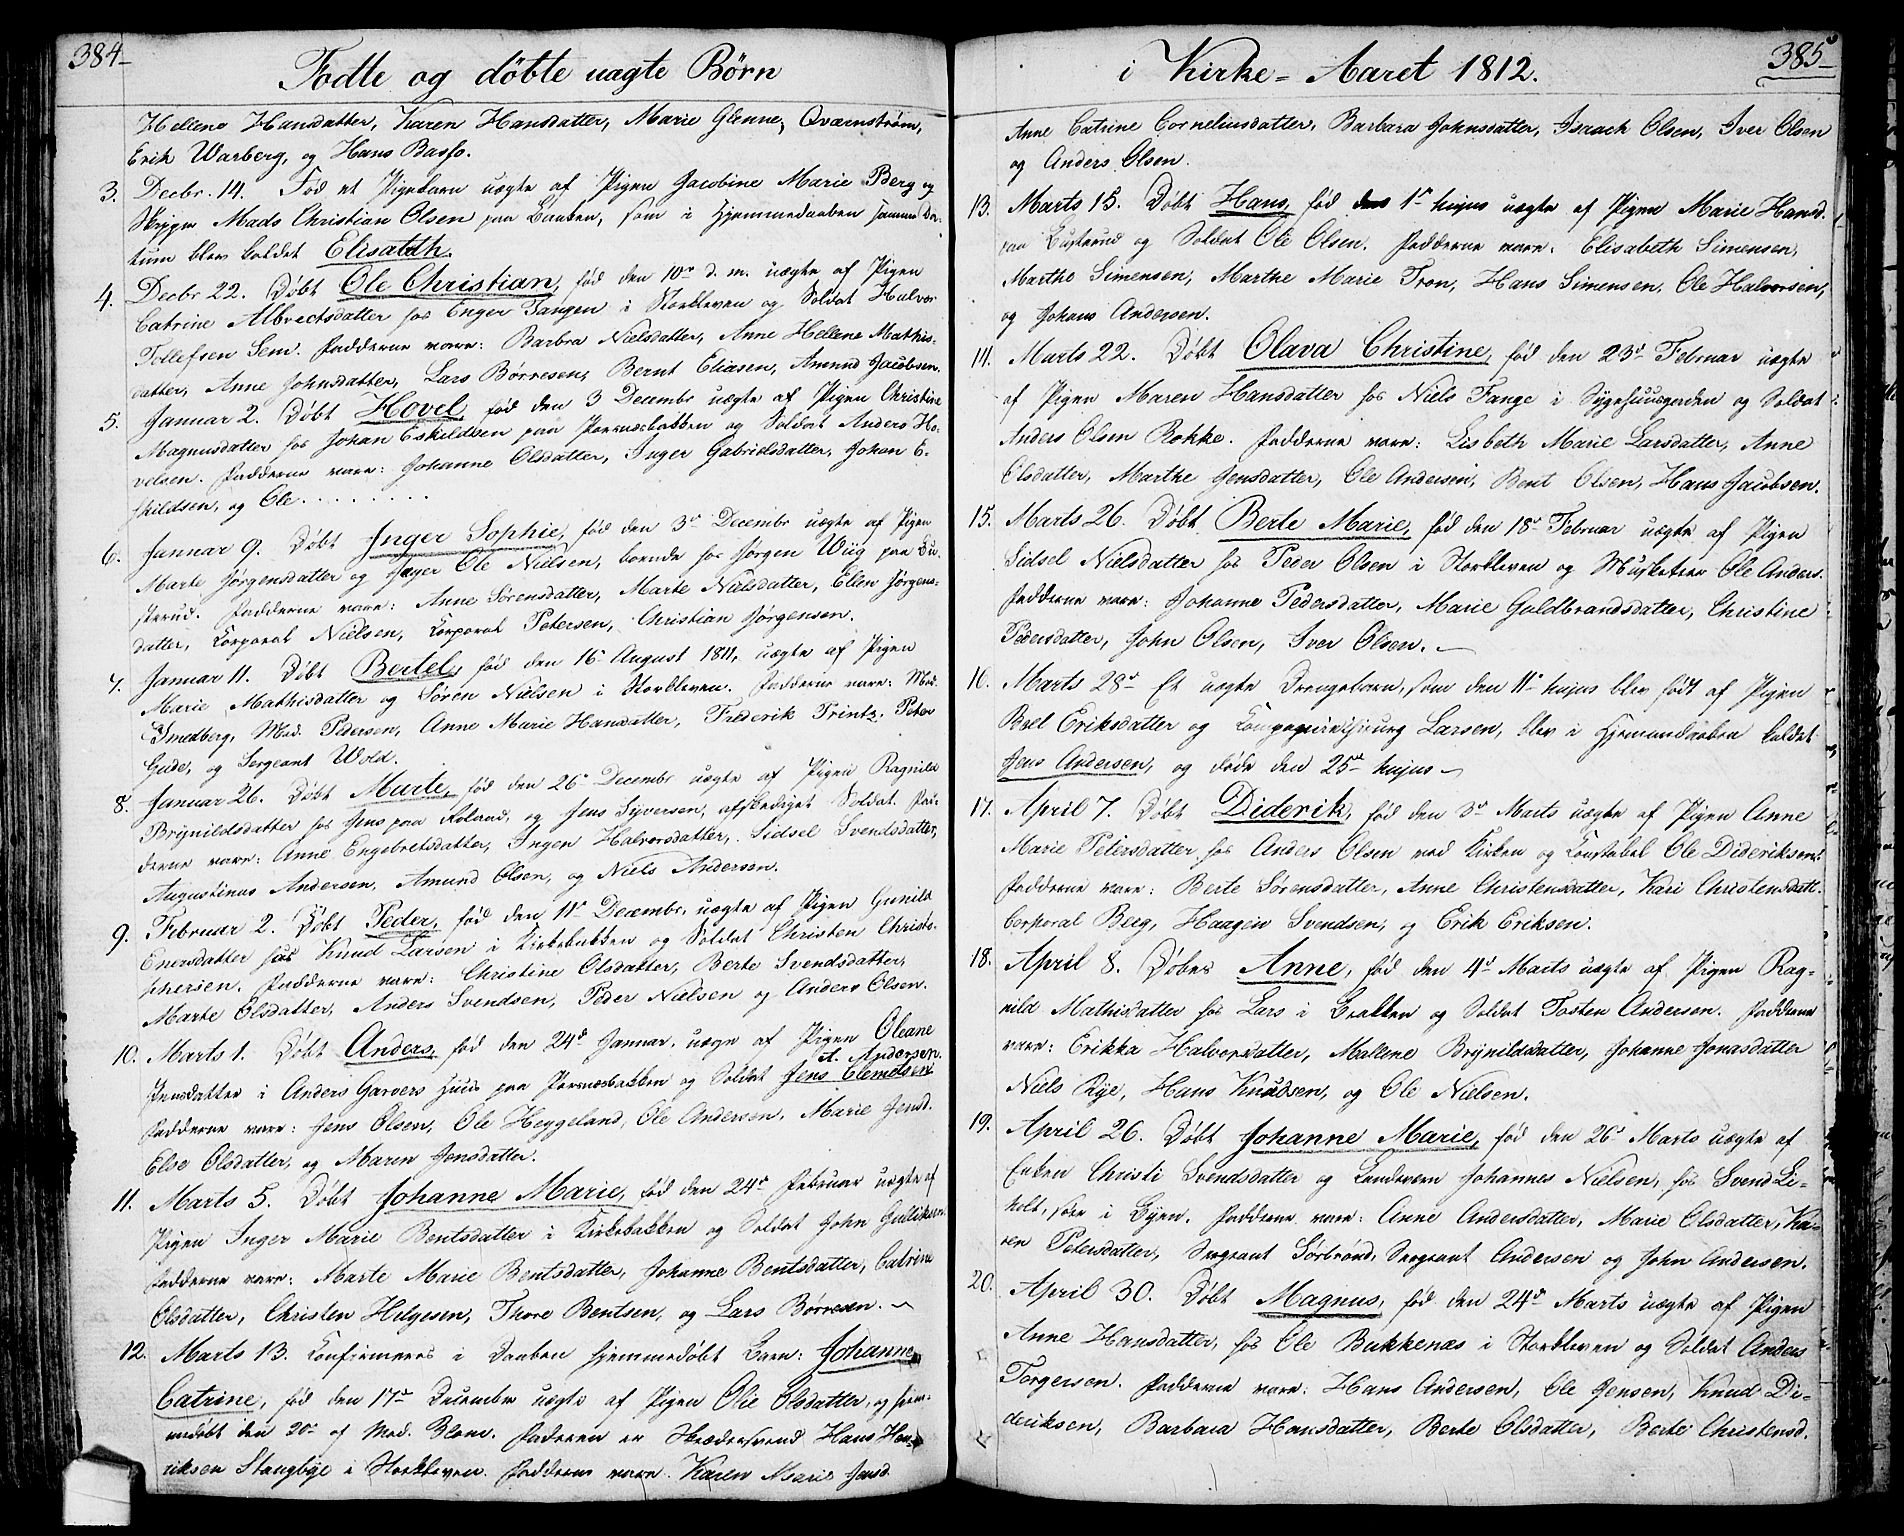 384
Fødte og døbte uægte Børn
Hellene Hansdatter, Karen Hansdatter, Marie Glenne, Qværnstrøm,
Erik Warberg, og Hans Basso.
3. Decbr. 14. Fød et Pigebarn uægte af Pigen Jacobine Marie Berg og
Mads Christian Olsen paa Banken, som i Hjemmedaaben samme Da-
tum blev kaldet Elisabeth.
4. Decbr 22. Døbt Ole Christian, fød den 10de d. m. uægte af Pigen
Catrine Albrectsdatter hos Enger Tangen i Storkleven og Soldat Halvor
Tollefsen Sem. Fadderne vare: Barbra Nielsdatter, Anne Hellene Mathis-
datter, Anne Johnsdatter, Lars Børresen, Bernt Eliasen, Amund Jacobsen.
5. Januar 2. Døbt Hovel, fød den 3 Decembr uægte af Pigen Christine
Magnusdatter hos Johan Eskildsen paa Pærnæsbakken og Soldat Anders Ho-
velsen. Fadderne vare: Johanne Olsdatter, Inger Gabrielsdatter, Johan E-
skildsen, og Ole . . . . . . . .
6. Januar 9. Døbt Inger Sophie, fød den 3de Decembr uægte af Pigen
Marte Jørgensdatter og Jæger Ole Nielsen, boende hos Jørgen Wiig paa Bu-
sterud. Fadderne vare: Anne Sørensdatter, Marte Nielsdatter, Ellen Jørgens-
datter, Corporal Nielsen, Corporal Petersen, Christian Jørgensen.
7. Januar 11. Døbt Bertel, fød den 16 August 1811, uægte af Pigen
Marie Mathisdatter og Søren Nielsen i Storkleven. Fadderne vare: Mad.
Smedberg, Mad. Pedersen, Anne Marie Hansdatter, Frederik Printz, Peter
Gude, og Sergeant Wold.
8. Januar 26. Døbt Marte, fød den 26 Decembr uægte af Pigen Ragnild
Brynildsdatter hos Jens paa Roland, og Jens Syversen, afskediget Soldat. Fad-
derne vare: Anne Engebretsdatter, Ingen Halvorsdatter, Sidsel Svendsdatter,
Augustinus Andersen, Amund Olsen, og Niels Andersen.
9. Februar 2. Døbt Peder, fød den 11te Decembr. uægte af Pigen Gunild
Enersdatter hos Knud Larsen i Kirkebakken og Soldat Christen Christo-
phersen. Fadderne vare: Christine Olsdatter, Berte Svendsdatter,
Marte Olsdatter, Anders Svendsen, Peder Nielsen og Anders Olsen.
10. Marts 1. Døbt Anders, fød den 24de Januar, uægte af Pigen Oleane
Jensdatter i Anders Garvers Huus paa Pærnæsbakken og Soldat Jens Clemetsen
Andersen.
Fadderne vare: Jens Olsen, Ole Heggeland, Ole Andersen, Marie Jensd.
Else Olsdatter, og Maren Jensdatter.
11. Marts 5. Døbt Johanne Marie, fød den 24de Februar uægte af
Pigen Inger Marie Bentsdatter i Kirkebakken og Soldat John Gulliksen.
Fadderne vare: Marte Marie Bentsdatter, Johanne Bentsdatter, Catrine
Olsdatter, Christen Helgesen, Thore Bentsen, og Lars Børresen.
12. Marts 13. Confirmeres i Daaben hjemmedøbt Barn: Johanne
Catrine, fød den 17de December uægte af Pigen Olie Olsdatter, og hjem-
medøbt den 20de af Mad. Blom. Faderen er Skrædersvend Hans Hen-
riksen Stangbye i Storkleven. Fadderne vare: Karen Marie Jensd.
385
i Kirke-Aaret 1812.
Anne Catrine Corneliusdatter, Barbara Johnsdatter, Isaach Olsen, Iver Olsen
og Anders Olsen.
13. Marts 15. Døbt Hans, fød den 1de hujus uægte af Pigen Marie Hansd.
paa Busterud og Soldat Ole Olsen. Fadderne vare: Elisabeth Simensen,
Marthe Simensen, Marthe Marie Tron, Hans Simensen, Ole Halvorsen,
og Johans Andersen.
14. Marts 22. Døbt Olava Christine, fød den 23de Februar uægte
af Pigen Maren Hansdatter hos Niels Tange i Sygehuusgaarden og Soldat
Anders Olsen Rokke. Fadderne vare: Lisbeth Marie Larsdatter, Anne
Olsdatter, Marthe Jensdatter, Ole Andersen, Berit Olsen, Hans Jacobsen.
15. Marts 26. Døbt Berte Marie, fød den 18de Februar uægte af Pigen
Sidsel Nielsdatter hos Peder Olsen i Storkleven og Musketeer Ole Anders.
Fadderne vare: Johanne Pedersdatter, Marie Guldbrandsdatter, Christine
Pedersdatter, John Olsen, Iver Olsen.
16. Marts 28de Et uægte Drengebarn, som den 11te hujus blev født af Pigen
Boel Eriksdatter og Larsen, blev i Hjemmedaaben kaldet
Jens Andersen, og døde den 25de hujus
17. April 7. Døbt Diderik, fød den 3de Marts uægte af Pigen Anne
Marie Petersdatter hos Anders Olsen ved Kirken og Constabel Ole Dideriksen.
Fadderne vare: Berte Sørensdatter, Anne Christensdatter, Kari Christensdatt.
Corporal Berg, Haagen Svendsen, og Erik Eriksen.
18. April 8. Døbes Anne, fød den 4de Marts uægte af Pigen Rag-
nild Mathisdatter hos Lars i Brækken og Soldat Tosten Andersen. Fadderne
vare: Erikka Halvorsdatter, Mallene Brynildsdatter, Johanne Jonasdatter
Niels Rye, Hans Knudsen, og Ole Nielsen.
19. April 26. Døbt Johanne Marie, fød den 26de Marts uægte af
Enken Christi Svendsdatter og Landeværn Johannes Nielsen, hos Svend Li-
holt, her i Byen. Fadderne vare: Anne Andersdatter, Marie Olsdatter, Ka-
ren Petersdatter, Sergeant Sørbrønd, Sergeant Andersen og John Andersen.
20. April 30. Døbt Magnus, fød den 24de Marts uægte af Pigen
Anne Hansdatter, hos Ole Bukkenæs i Storkleven og Soldat Anders
Torgersen. Fadderne vare: Hans Andersen, Ole Jensen, Knud Di-
deriksen, Barbara Hansdatter, Berte Olsdatter, Berte Christensd.